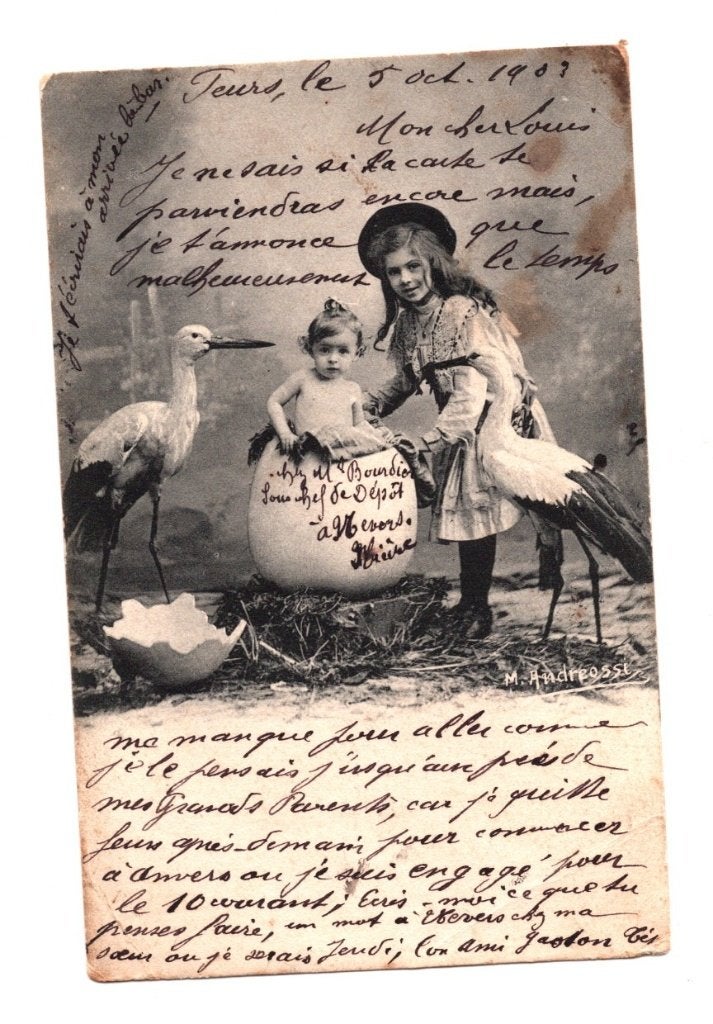 Tours, le 5 oct. 1903
Mon cher Louis
Je ne sais si la carte te
parviendras encore mais,
je t'annonce que
malheureusement le temps
me manque pour aller comme
je le pensais jusqu'aux près de
mes Grands Parents, car je quitte
Tours après-demain pour commencer
à Anvers ou je suis engagé pour
le 10 courant; Ecris-moi ce que tu
penses faire, un mot à Nevers chez ma
sœur ou je serais Jeudi, Ton Ami Gaston
chez Mr Bourdier
Sous chef de Dépôt
à Nevers.
Nièvre
Je t'écrirais à mon
arrivée là-bas.
M. Andreossi